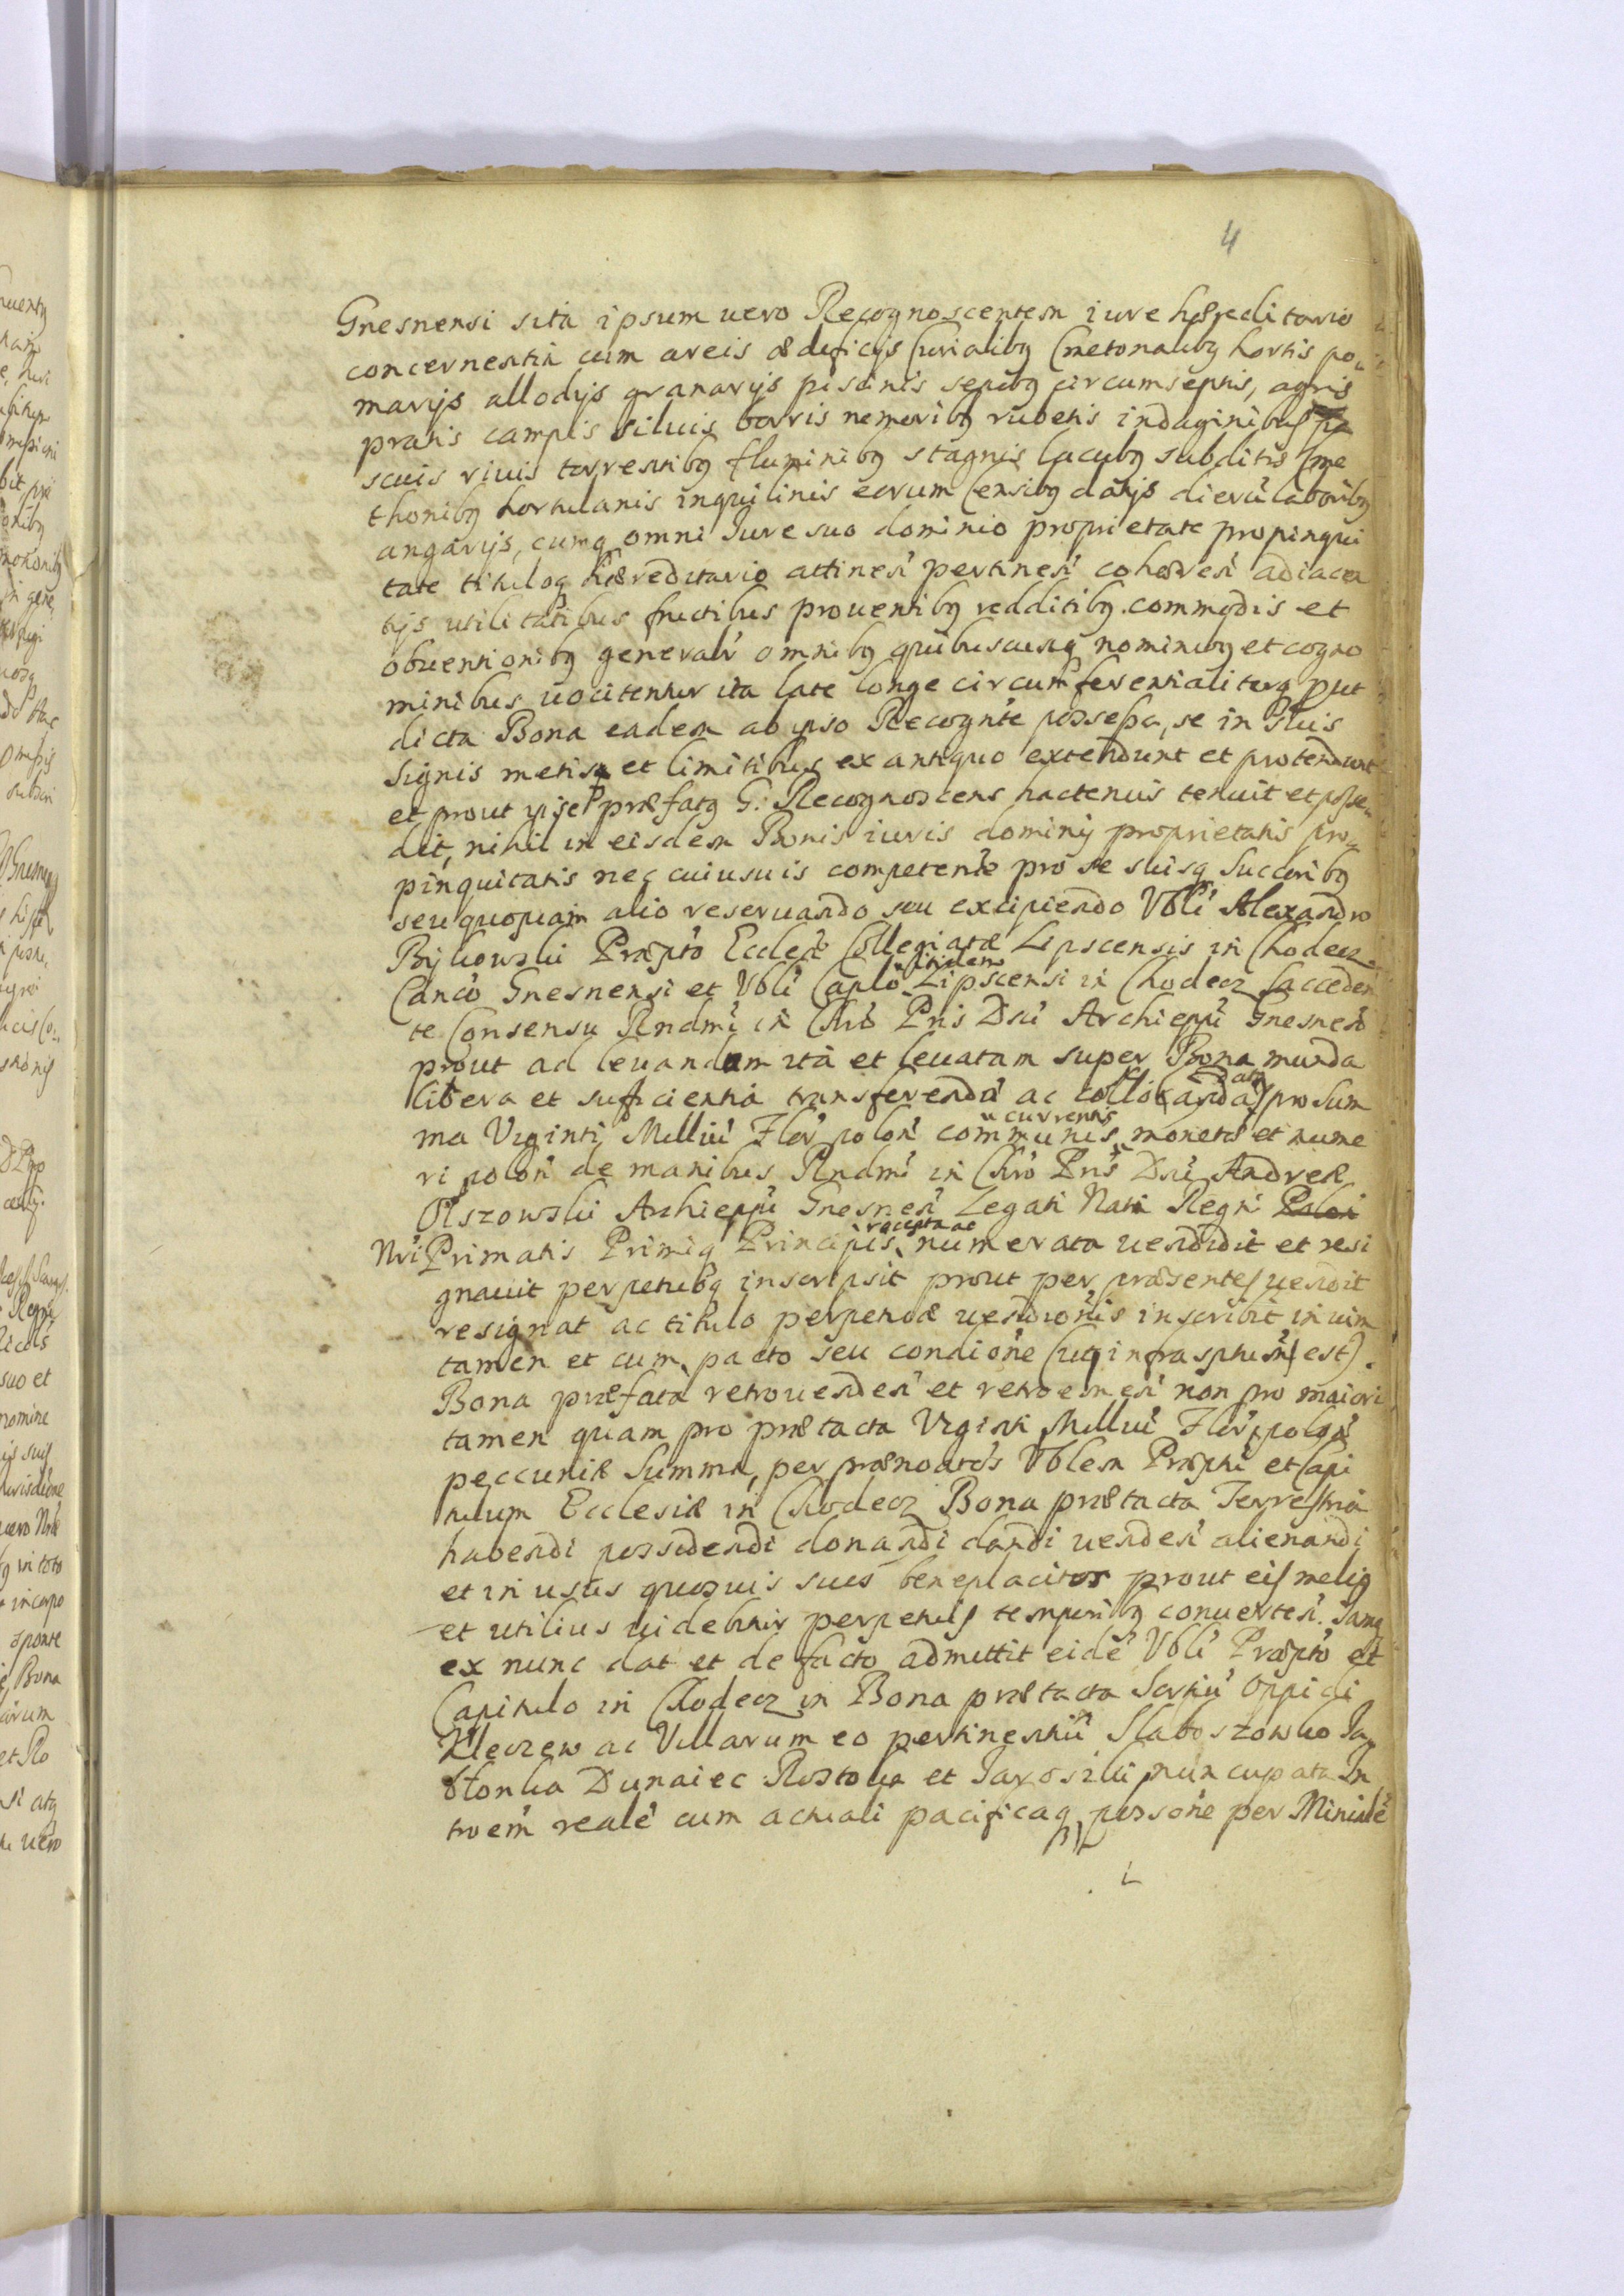 4
Gnesnensi sita ipsum uero Recognoscentem iure hæreditario
concernentia cum areis ædificijs Curialibq Cmetonalibq hortis po„
marijs allodijs granarijs piscinis sepibq circumseptis, agris
pratis campis siluis borris nemoribq rubetis indaginibus pa
scuis riuis torrentibq fluminibq stagnis lacubq subditis Cme
thonibq hortulanis inquilinis eorum Censibq datijs dierū laboribq
angarijs, cumq omni Iure suo dominio proprietate propinqui
tate tituloq hæreditario attinen pertinen cohæren adiacen
tijs utilitatibus fructibus prouentibq redditibq commodis et
obuentionibq generalr omnibq quibuscunq nominibq et cogno
minibus uocitentur ita late longe circumferentialiterq put
dicta Bona eadem ab ipso Recognte possessa, se in suis
Signis metisq et limitibus ex antiquo extendunt et protendunt
et prout ipse præfatq G. Recognoscens hactenus tenuit et posse„
dit, nihil in eisdem Bonis iuris dominij proprietatis pro„
pinquitatis nec cuiusuis competente pro se suisq Succoribq
seu quopiam alio reseruando seu excipiendo Vbli Alexandro
Bykowski Præpto Eccleæ Collegiatæ Lipscensis in Chodecz
Canco Gnesnensi et Vbli Caplo ibidem Lipscensi in Chodecz (acceden
te Consensu Rndmi in Chro Pris Dni Archieppi Gnesnen
prout ad leuandam ita et leuatam super Bona munda
libera et suficientia transferenda ac collo(anda) catq pro Sum
ma Viginti Milliu Flor polon communis u currentis monetæ et nume
ri polon de manibus Rndmi in Chro Pris Dni Andreæ
Olszowski Archieppi Gnesnen Legati Nati Regni Polon
Nri Primatis Primiq Principis recepta ac numerata uendidit et resi
gnauit perpetuoq inscripsit prout per præsentes uendit
resignat ac titulo perpetuæ uendionis inscribit in uim
tamen et cum pacto seu condione (uti infra sptum est).
Bona præfata retrouenden et retroemen non pro maiori
tamen quam pro prætacta Viginti Milliu Flor polon
peccuniæ Summa, per prænoatos Vblem Præptu et Capi
tulum Ecclesiæ in Chodecz Bona prætacta Terrestria
habendi possidendi donandi dandi uenden alienandi
et in usus quosuis suos beneplacitos prout eis meliq
et utilius uidebitur perpetuis temporibq conuerten. Iamq
ex nunc dat et de facto admittit eide Vbli Præpto et
Capitulo in Chodecz in Bona prætacta Sortiu Oppidi
Kleczew ac Villarum eo pertinentiu Slaboszowko Ja„
błonka Dunaiec Rostoka et Jaroszki nuncupata In
troem reale cum actuali pacificaq possone per Miniale